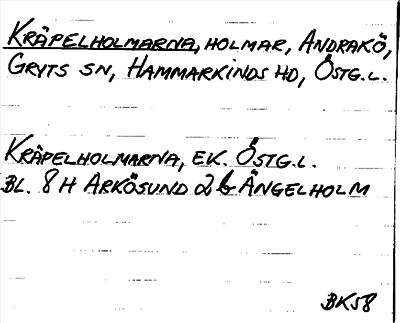 KRÄPELHOLMARNA, HOLMAR, ANDRAKÖ,
GRYTS SN, HAMMARKINDS HD, ÖSTG.L.
KRÄPELHOLMARNA, EK. ÖSTG.L.
BL. 8 H ARKÖSUND 2 b ÄNGELHOLM
BK58